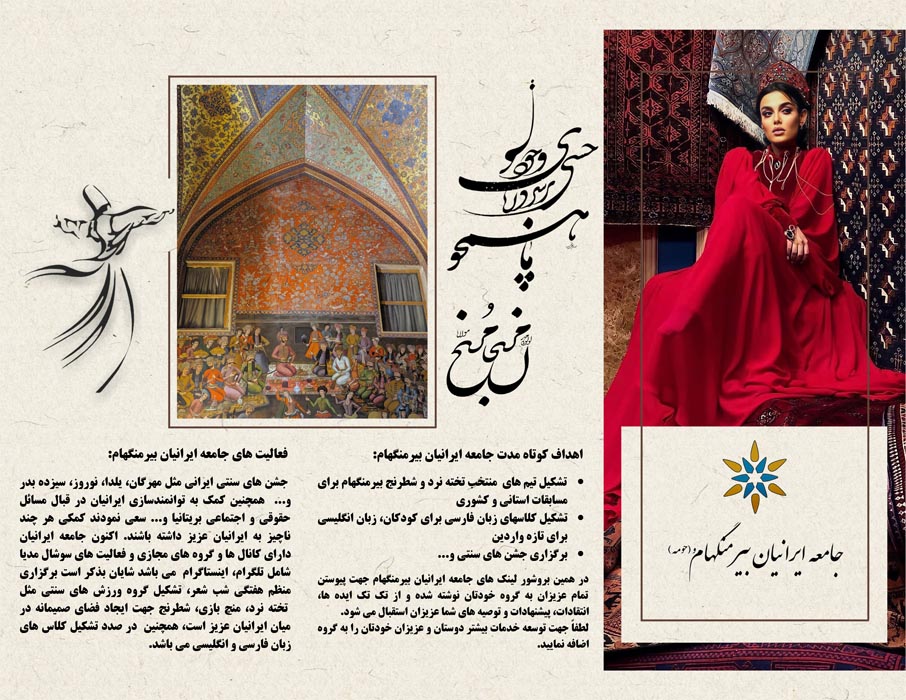 جامعه ایرانیان بیرمنگهام (جومه)
اهداف کوتاه مدت جامعه ایرانیان بیرمنگهام:
تشکیل تیم های منتخب تخته نرد و شطرنج بیرمنگهام برای
مسابقات استانی و کشوری
تشکیل کلاسهای زبان فارسی برای کودکان، زبان انگلیسی
برای تازه واردین
برگزاری جشن های سنتی و...
در همین بروشور لینک های جامعه ایرانیان بیرمنگهام جهت پیوستن
تمام عزیزان به گروه خودتان نوشته شده و از تک تک ایده ها،
انتقادات، پیشنهادات و توصیه های شما عزیزان استقبال می شود.
لطفاً جهت توسعه خدمات بیشتر دوستان و عزیزان خودتان را به گروه
اضافه نمایید.
فعالیت های جامعه ایرانیان بیرمنگهام:
جشن های سنتی ایرانی مثل مهرگان، یلدا، نوروز، سیزده بدر
و... همچنین کمک به توانمندسازی ایرانیان در قبال مسائل
حقوقی و اجتماعی بریتانیا و... سعی نمودند کمکی هر چند
ناچیز به ایرانیان عزیز داشته باشند. اکنون جامعه ایرانیان
دارای کانال ها و گروه های مجازی و فعالیت های سوشال مدیا
شامل تلگرام، اینستاگرام می باشد شایان بذکر است برگزاری
منظم هفتگی شب شعر، تشکیل گروه ورزش های سنتی مثل
تخته نرد، منچ بازی، شطرنج جهت ایجاد فضای صمیمانه در
میان ایرانیان عزیز است، همچنین در صدد تشکیل کلاس های
زبان فارسی و انگلیسی می باشد.